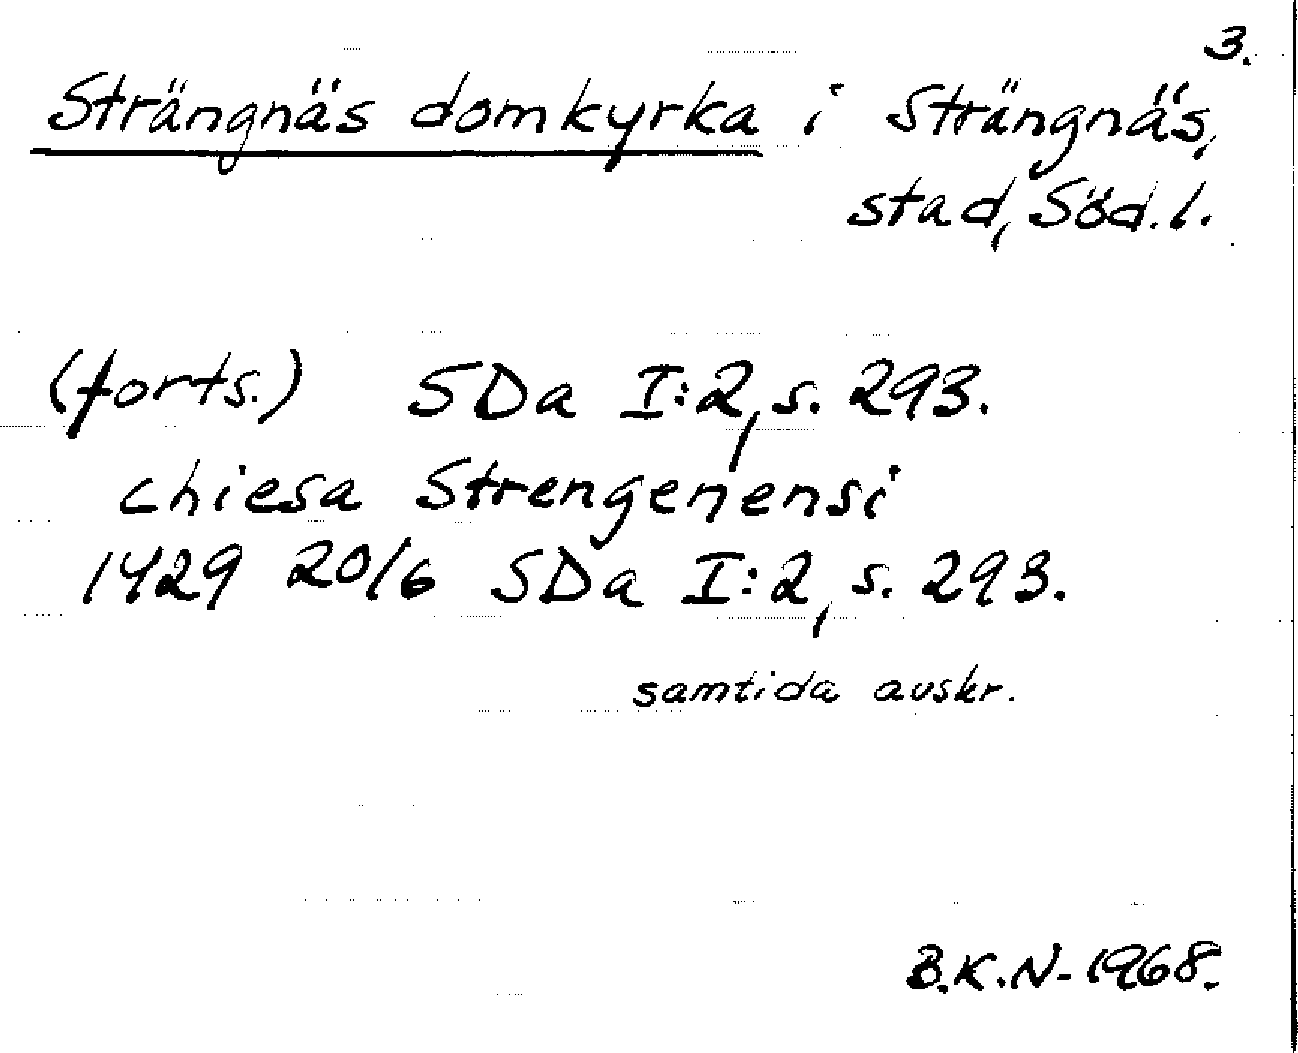 3.
Strängnäs domkyrka i Strängnäs,
stad, Söd.l.
(forts.) SDa I:2, s. 293.
chiesa Strengenensi
1429 20/6 SDa I:2, s. 293.
samtida avskr.
B.K.N-1968.